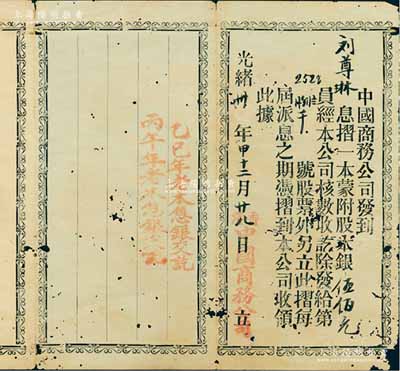 中國商務公司發到
劉尊琳 息摺一本蒙附股本銀 伍佰元
員經本公司核數收訖除發給第
252 號股票外另立此摺每
屆派息之期憑摺到本公司收領
此據
光緒 卅 年 甲 十二 月 廿八 日 立
中國商務公司
乙巳年老本息銀交訖
丙午年老本息銀交訖